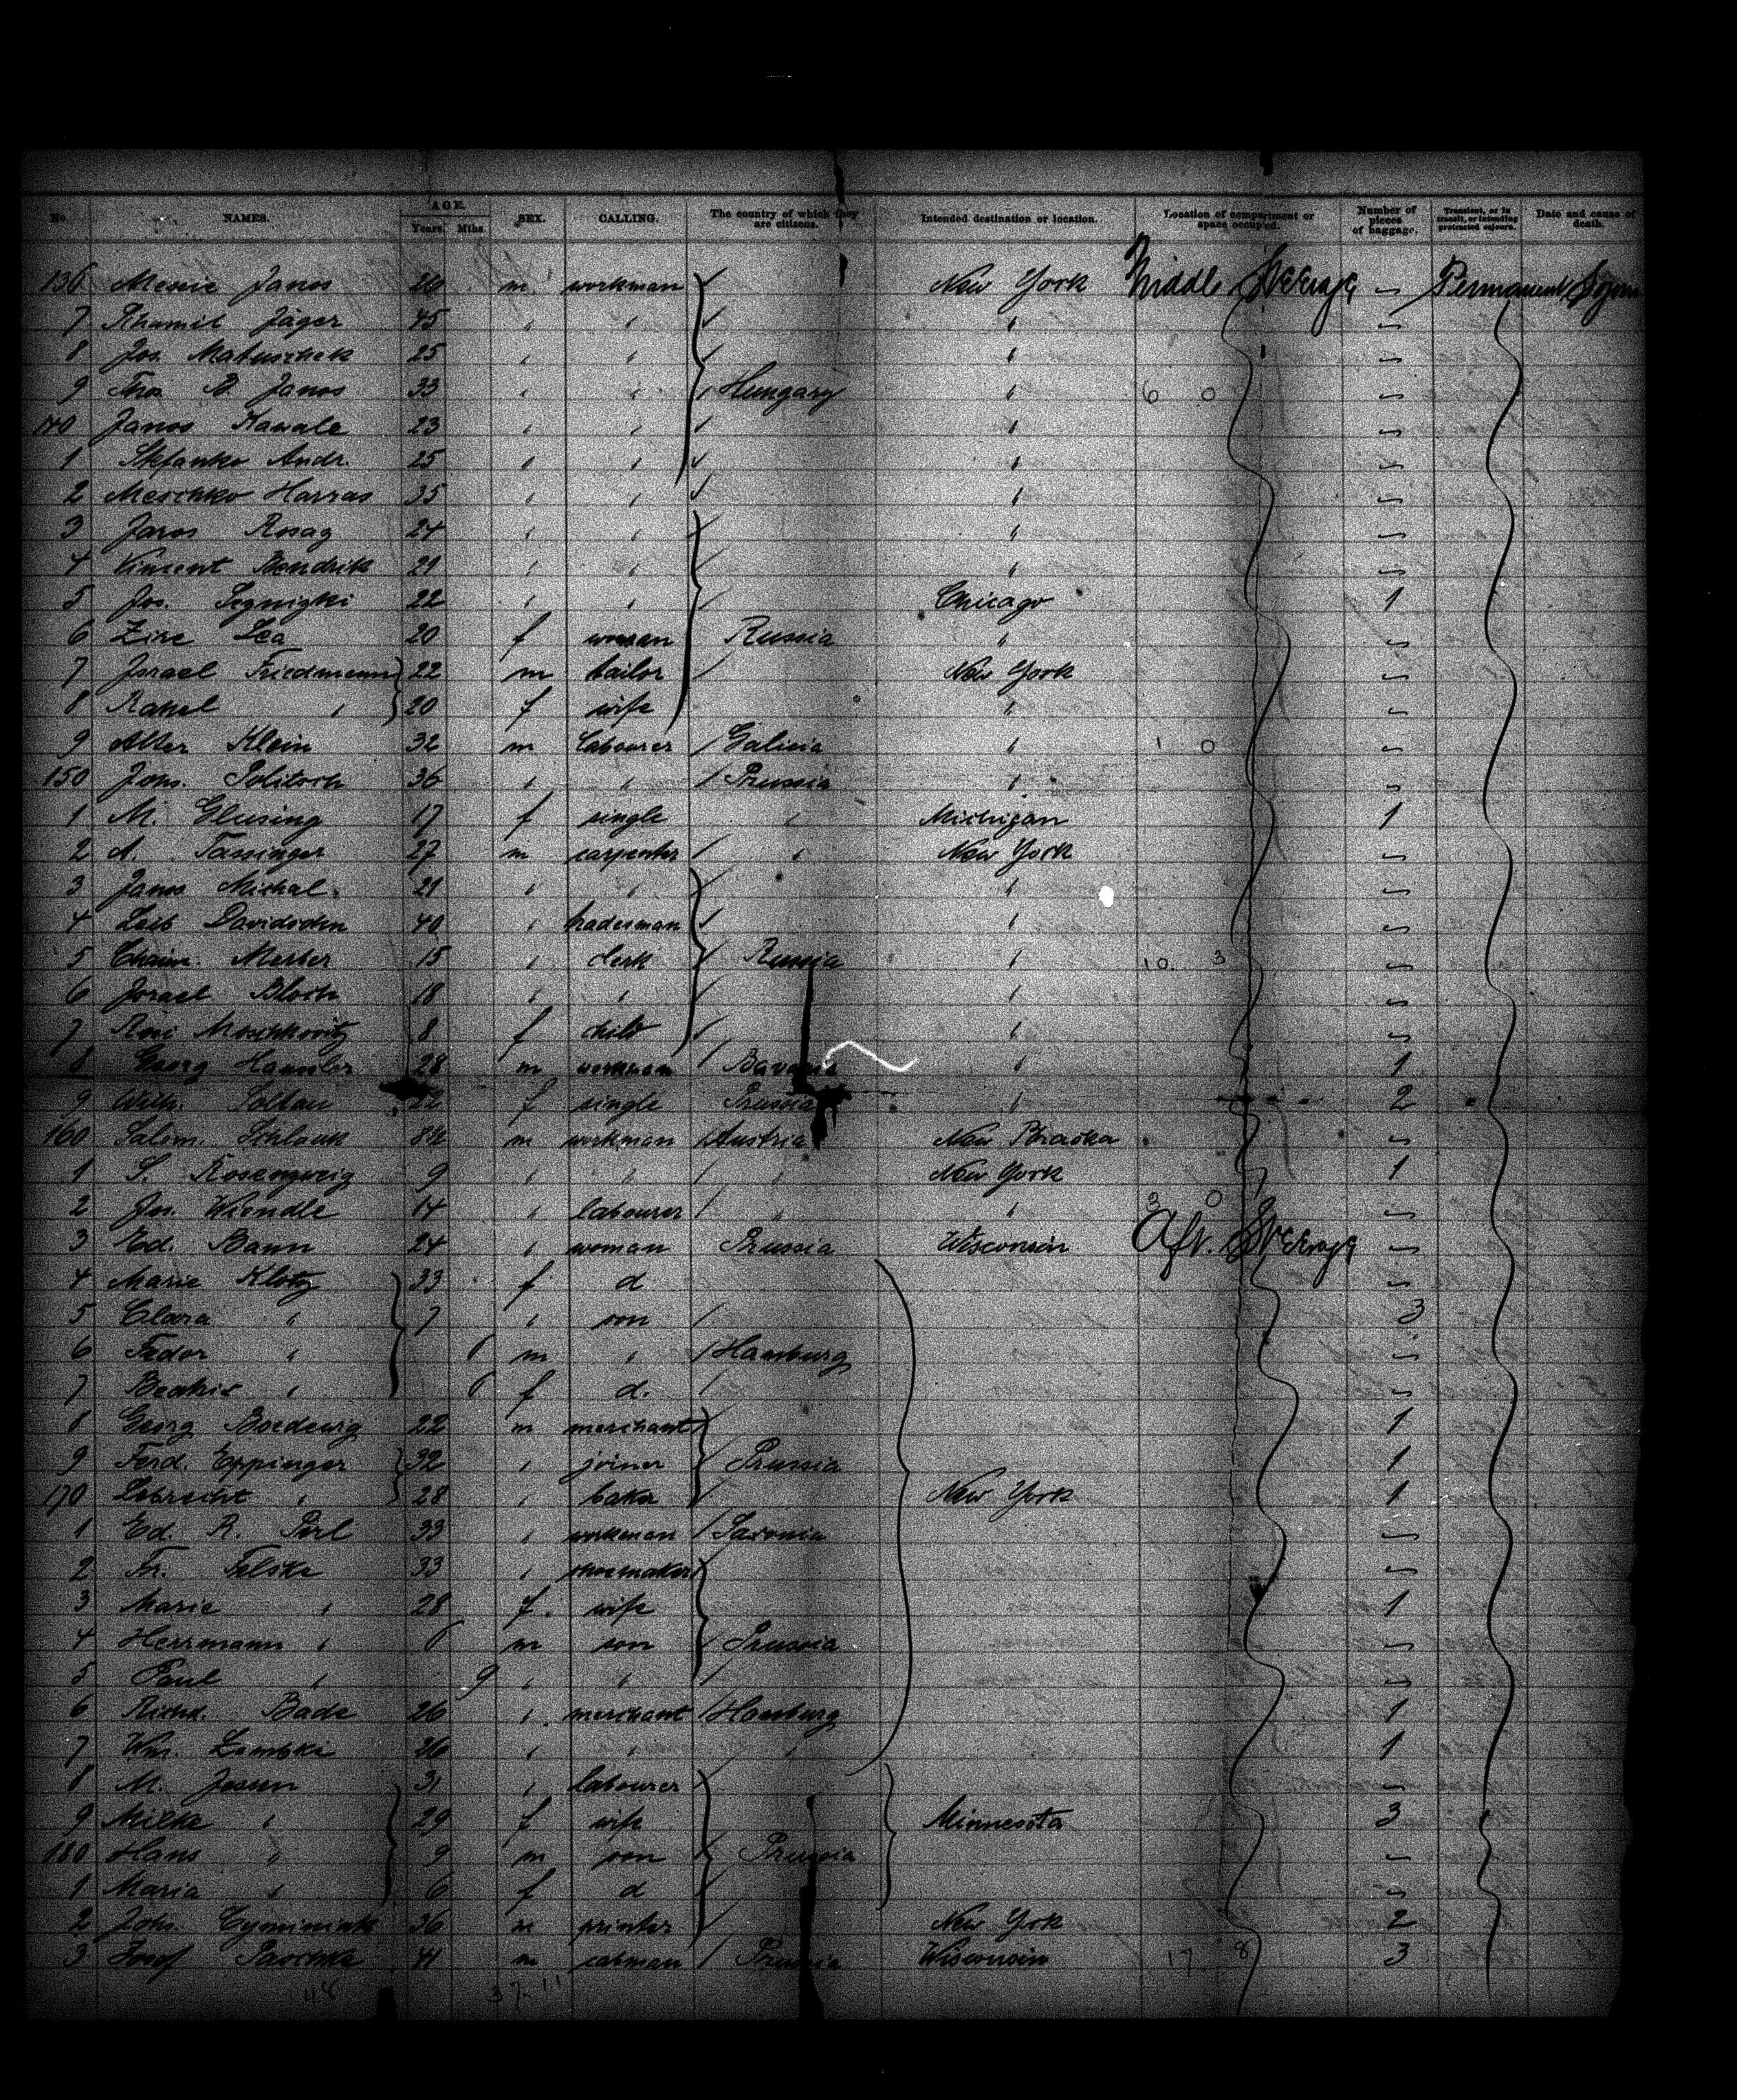 No. NAMES. AGE. Years. Mths. SEX. CALLING. The country of which they are citizens. Intended destination or location. Location of compartment or space occupied. Number of pieces of baggage. Transient, or in transit, or intending protracted sojourn. Date and cause of death.
136 Janos 26 m workman New York Middle Steerage Permanent
7 Jäger 45 " " "
8 Jos. Matuschek 25 " " "
9 Janos 33 " " Hungary " 6 0
140 Janos Kawale 23 " " "
1 Stefanko Andr. 25 " " "
2 Meschko Harras 35 " " "
3 Rosag 24 " " "
4 Vincent Bendrik 29 " " "
5 Jos. 22 " " Chicago 1
6 Zire Lea 20 f woman Russia "
7 Israel Friedmann 22 m tailor New York
8 Rahel " 20 f wife "
9 Alter Klein 32 m labourer Galicia " 1 0
150 Johs. 36 " " Prussia "
1 M. Glusing 17 f single " Michigan 1
2 A. Tassinger 27 m carpenter " New York
3 Janos Michal 21 " " "
4 Leib 40 " tradesman "
5 Chaim 15 " clerk Russia " 10. 3
6 Israel Bloch 18 " " "
7 Moschkovitz 8 f child "
8 Georg 28 m workman Bavaria " 1
9 Wilh. Soltau 22 f single Prussia " 2
160 Salom. m workman Austria
1 S. Rosenzweig 9 " " " New York 1
2 Jos. Wiendle 14 " labourer " " 3 0
3 Ed. Bann 24 " woman Prussia Wisconsin Aft. Steerage
4 Marie Klotz 33 f d
5 Clara " 7 " son 3
6 Fedor " 6 m " Hamburg
7 " 6 f d.
8 Georg Boedewig 22 m merchant 1
9 Ferd. Eppinger 32 " joiner Prussia 1
170 Lebrecht " 28 " baker New York 1
1 Ed. R. Perl 33 " workman Saxonia
2 Fr. Felske 33 " shoemaker
3 Marie " 28 f. wife 1
4 Herrmann " 6 m son Prussia
5 Paul " 9 " "
6 Richd. Bade 26 " merchant Hamburg 1
7 Wm. Lembke 26 " " " 1
8 M. Jessen 31 " labourer
9 Milka " 29 f wife Minnesota 3
180 Hans " 9 m son Prussia
1 Maria " 6 f d
2 Johs. 36 m printer New York 2
3 Josef 41 m cabman Prussia Wisconsin 17 8 3
48 37. 11